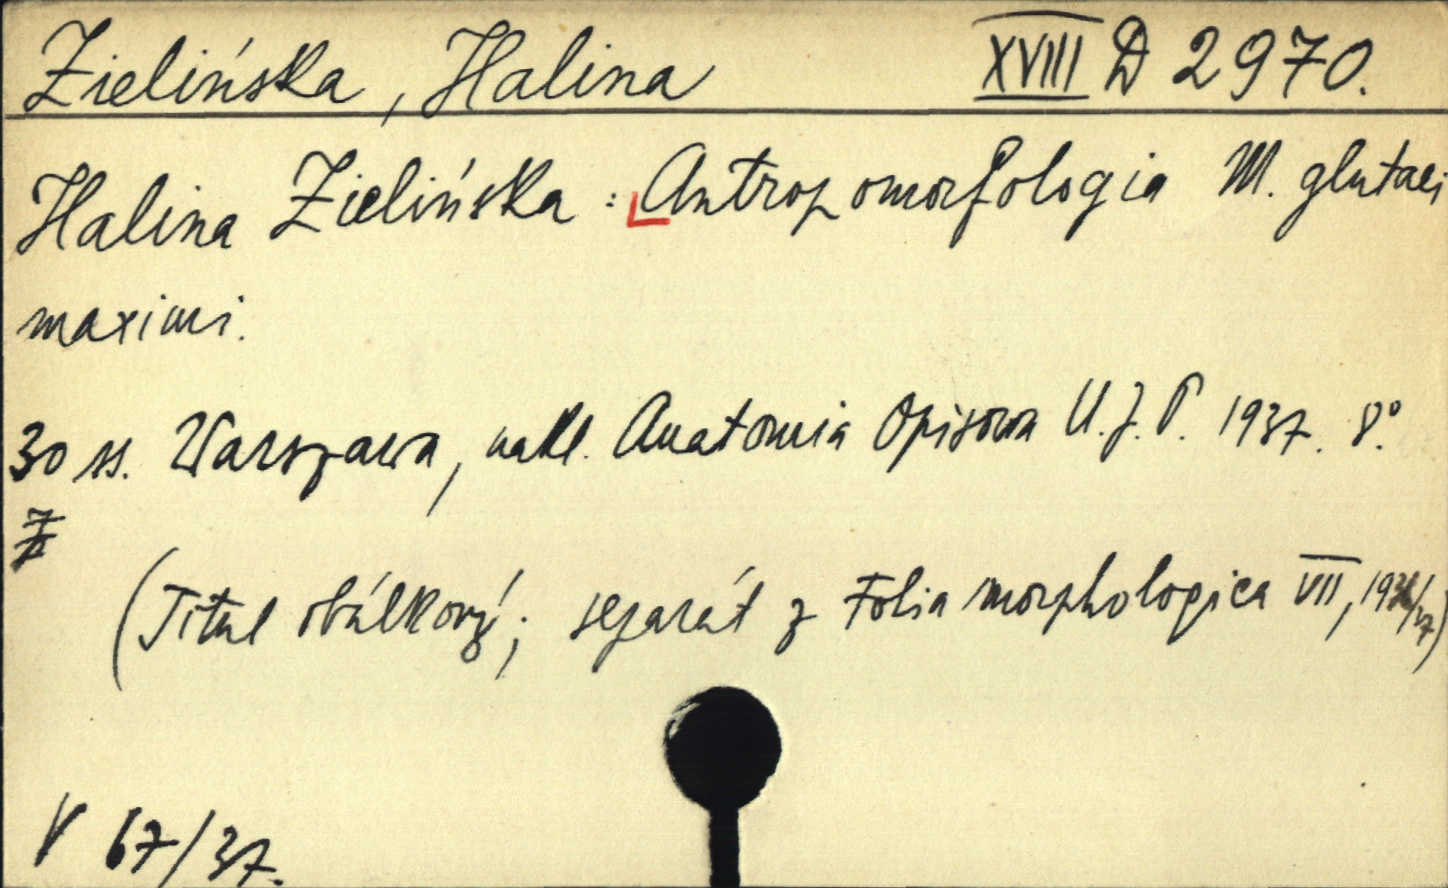 Zielińska, Halina XVIII D 2970.
Halina Zielińska: Antropomorfologia M. glutaei
maximi.
30 ss. Warszawa, nakl. Anatomia Opisowa U.J.P. 1937. 8°.
(Titul obálkový; separát z Folia morphologica VII, 1936/37)
V 67/37.